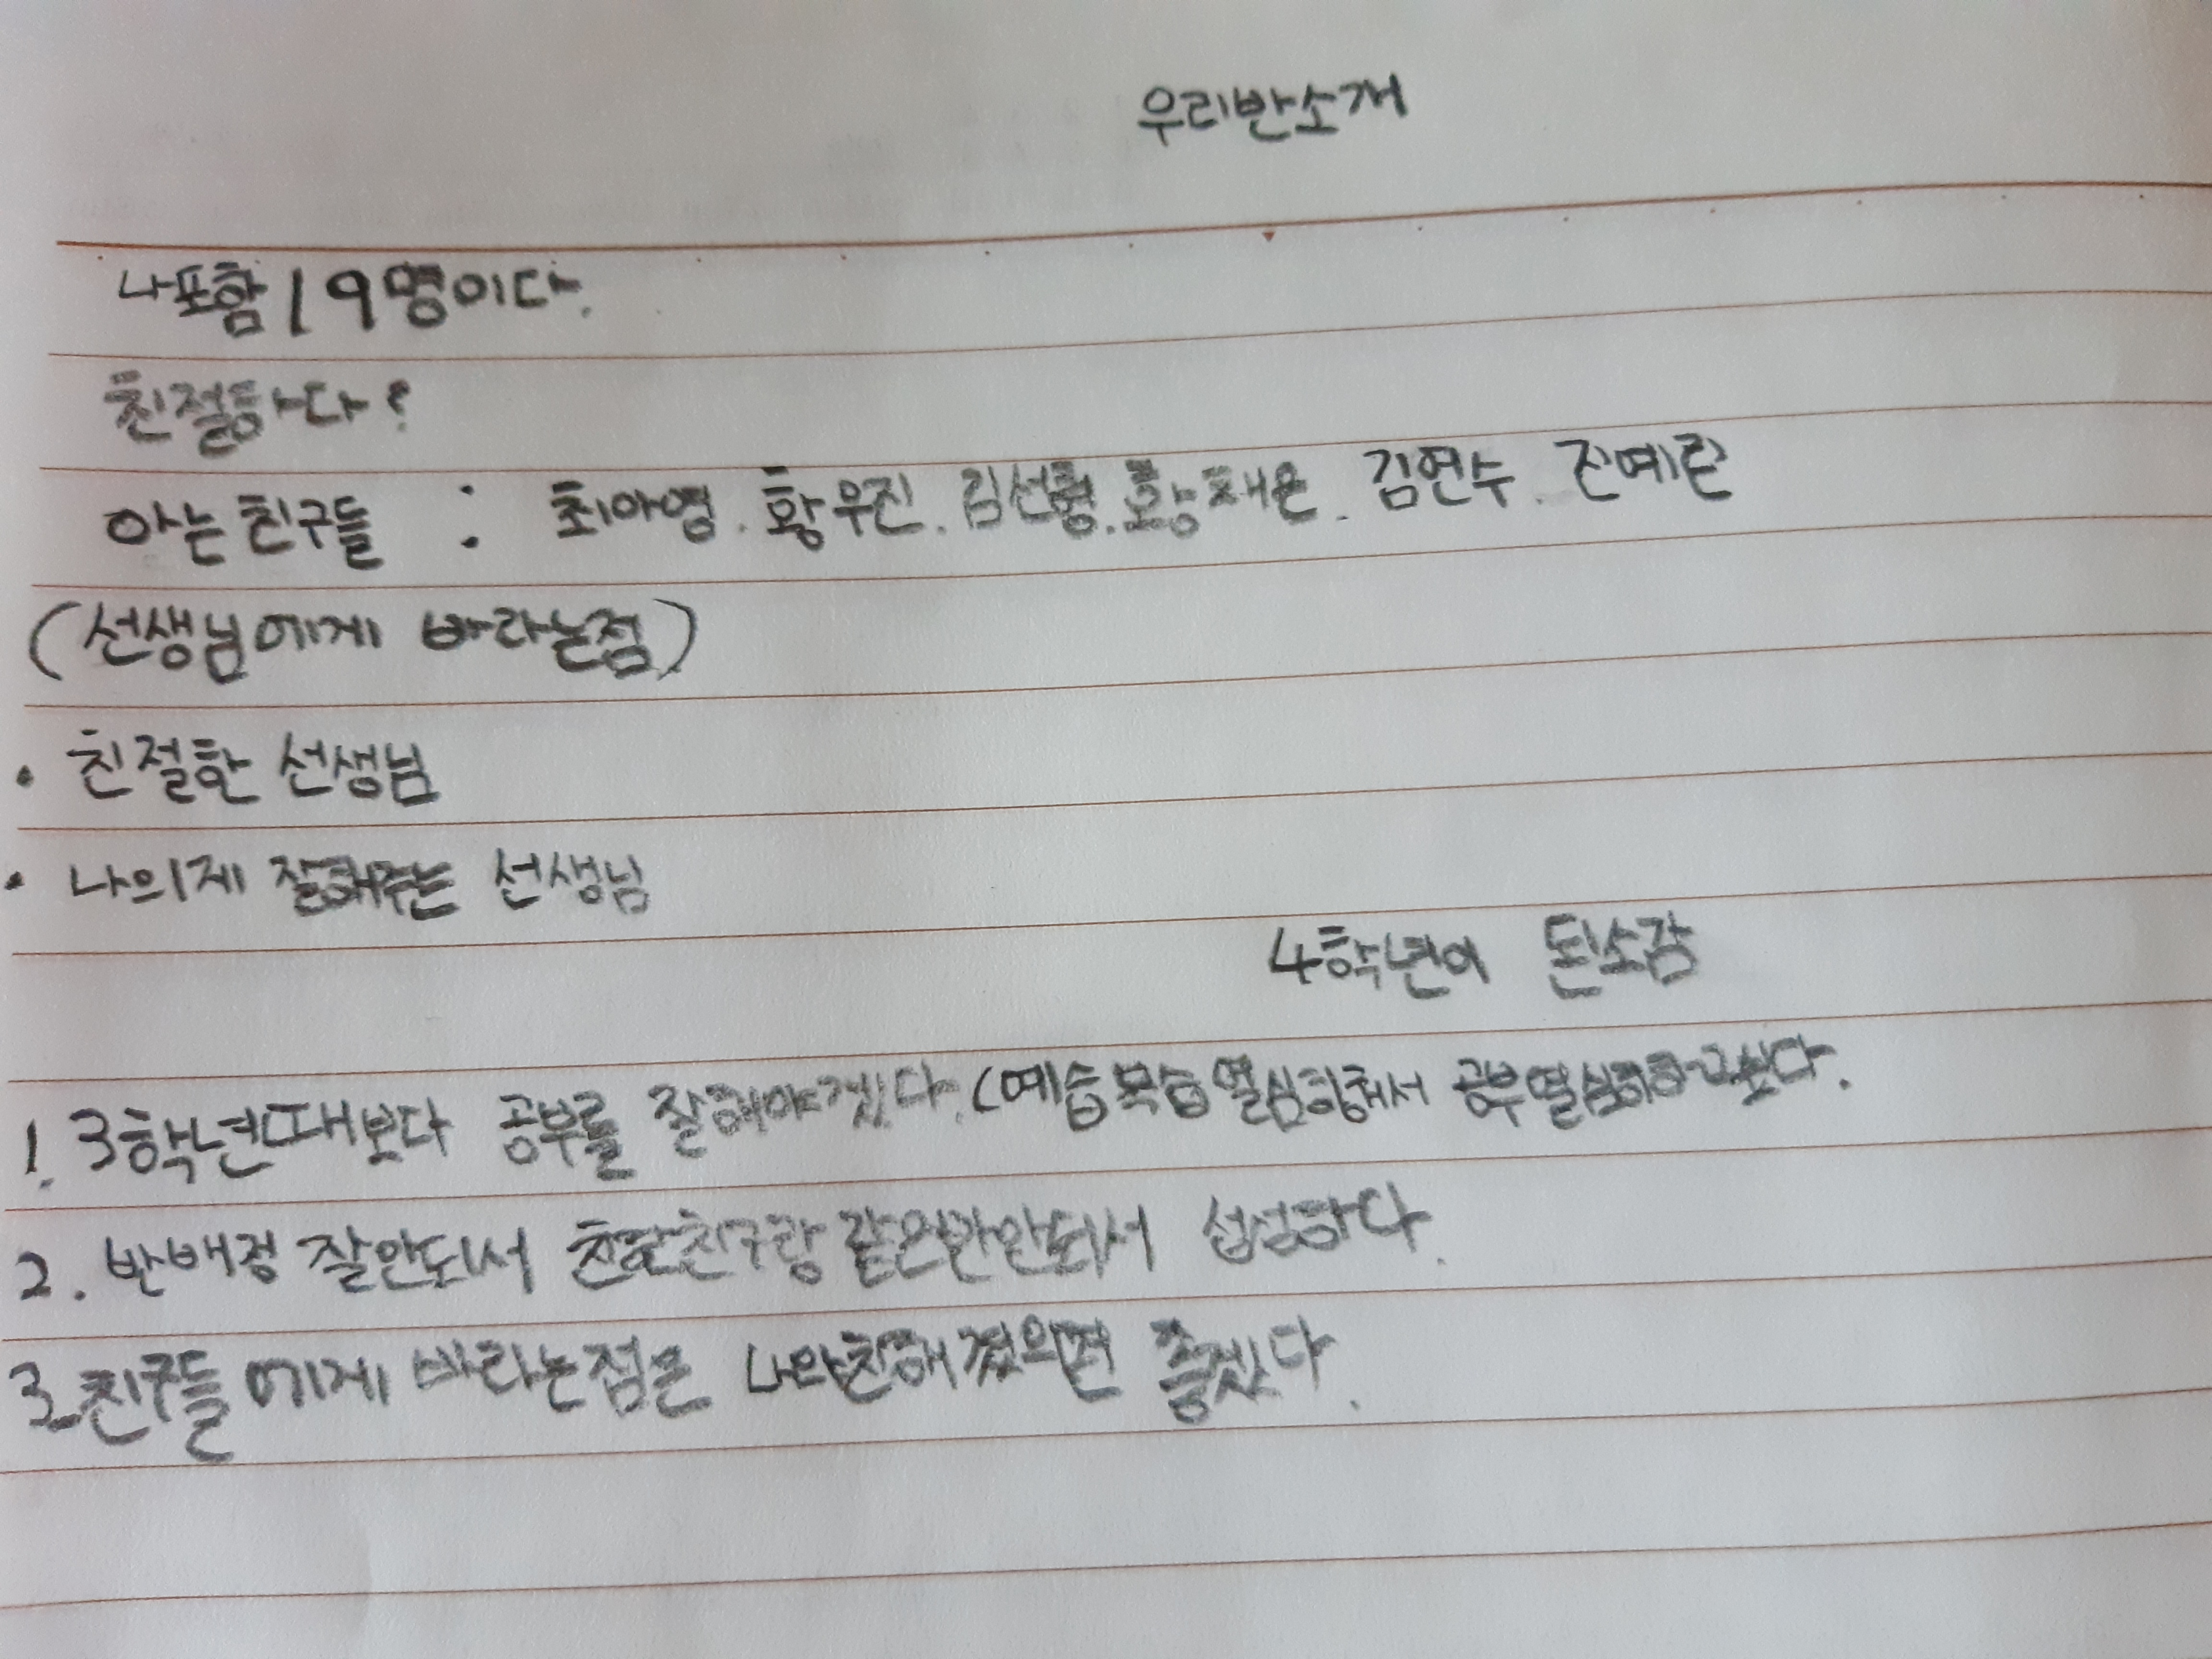 우리반소개
나포함 19명이다.
친절하다?
아는 친구들 : 최아영. 황우진. 김선형. 황채은. 김연수. 진예린
(선생님에게 바라는점)
· 친절한 선생님
· 나의게 잘해주는 선생님
4학년이 된소감
1. 3학년때보다 공부를 잘해야겠다. (예습복습 열심히해서 공부열심히하고싶다.
2. 반배정 잘안되서 친한친구랑 같은반안되서 섭섭하다.
3. 친구들에게 바라는점은 나와친해졌으면 좋겠다.